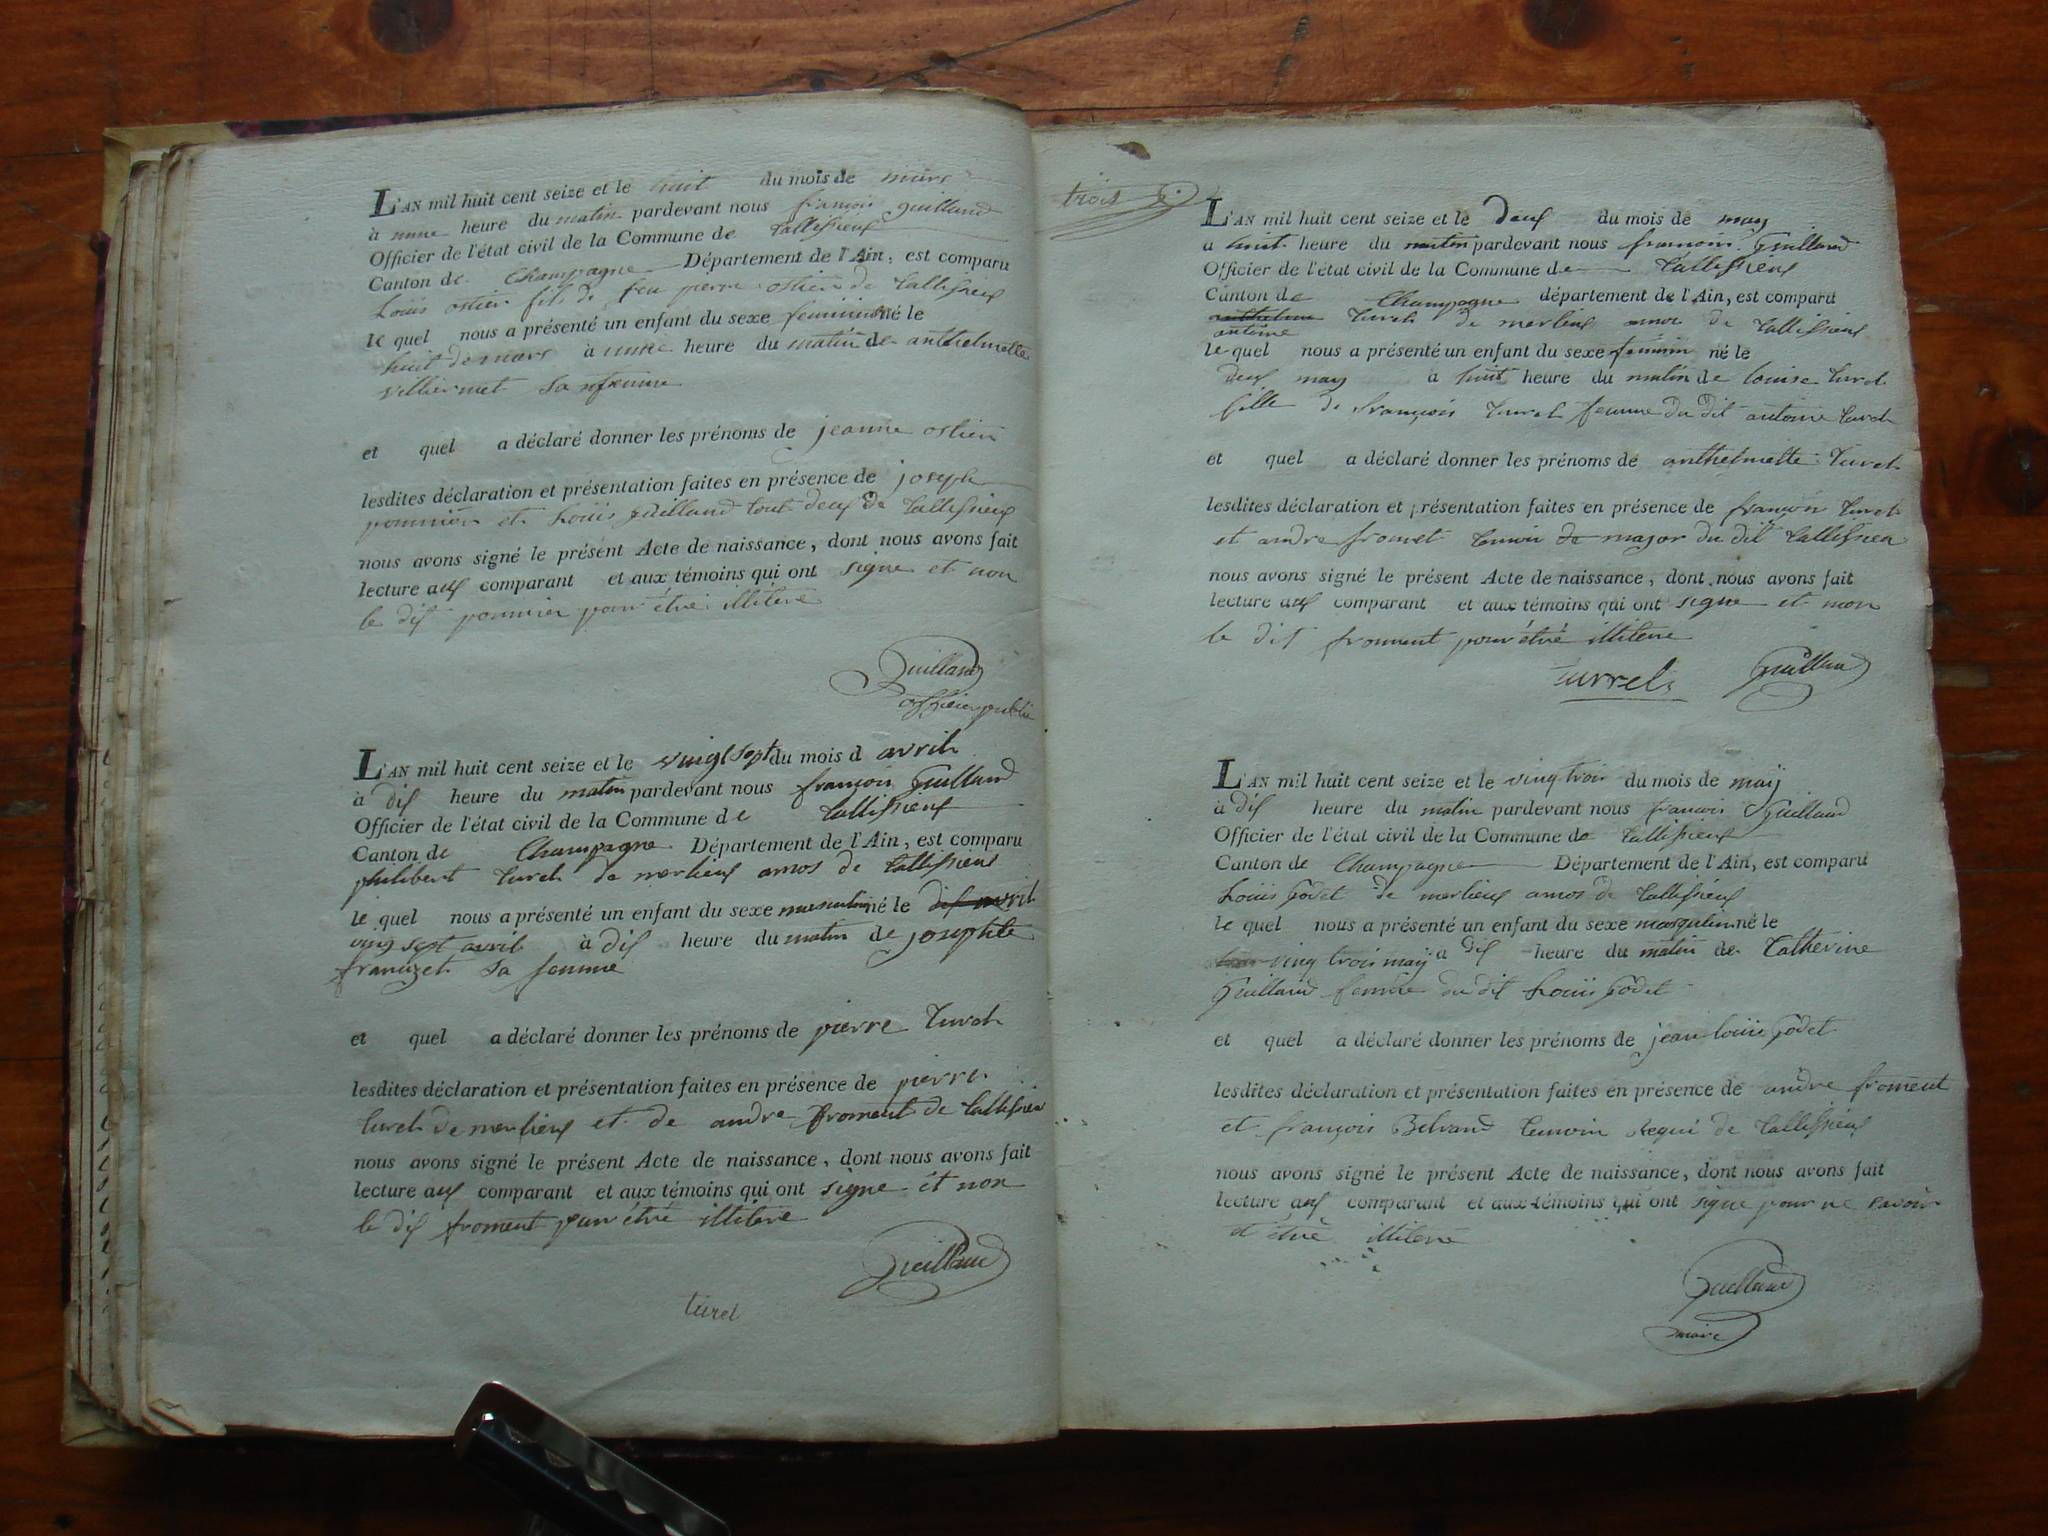 L'AN mil huit cent seize et le huit du mois de mars
à unne heure du matin pardevant nous françois guilland
Officier de l'état civil de la Commune de tallissieux
Canton de Champagne Département de l'Ain, est comparu
Louis ostier fils de feu pierre ostier de tallissieux
le quel nous a présenté un enfant du sexe feminin né le
huit de mars à unne heure du matin de anthelmette
villiermet sa femme
et quel a déclaré donner les prénoms de jeanne ostier
lesdites déclaration et présentation faites en présence de joseph
pommier et Louis guilland tout deux de tallissieux
nous avons signé le présent Acte de naissance, dont nous avons fait
lecture aux comparant et aux témoins qui ont signe et non
le dis pommier pour étre illitere
Guilland
officier public
L'AN mil huit cent seize et le vingt sept du mois d avril
à dix heure du matin pardevant nous françois Guilland
Officier de l'état civil de la Commune de tallissieux
Canton de Champagne Département de l'Ain, est comparu
philibert turel de merlieux amos de tallissieux
le quel nous a présenté un enfant du sexe masculin né le dix avril
ving sept avril à dix heure du matin de josephte
francizet sa femme
et quel a déclaré donner les prénoms de pierre turel
lesdites déclaration et présentation faites en présence de pierre
turel de merlieux et de andre froment de tallissieu
nous avons signé le présent Acte de naissance, dont nous avons fait
lecture aux comparant et aux témoins qui ont signe et non
le dis froment pour étre illitere
Guilland
turel
trois
L'AN mil huit cent seize et le deux du mois de may
a huit heure du matin pardevant nous françois Guilland
Officier de l'état civil de la Commune de tallissieux
Canton de Champagne département de l'Ain, est comparu
turel de merlieux amos de tallissieux
antoine
le quel nous a présenté un enfant du sexe feminin né le
deux may a huit heure du matin de louise turel
fille de françois turel femme du dit antoine turel
et quel a déclaré donner les prénoms de anthelmette turel
lesdites déclaration et présentation faites en présence de françois turel
et andre froment temoin de major du dit tallissieu
nous avons signé le présent Acte de naissance, dont nous avons fait
lecture aux comparant et aux témoins qui ont signe et non
le dit froment pour étre illitere
turrel Guilland
L'AN mil huit cent seize et le ving trois du mois de maij
à dix heure du matin pardevant nous françois Guilland
Officier de l'état civil de la Commune de tallissieux
Canton de Champagne Département de l'Ain, est comparu
Louis Godet de merlieux amos de tallissieux
le quel nous a présenté un enfant du sexe masqulin né le
ving trois maij a dix heure du matin de Catherine
Guilland femme du dit Louis Godet
et quel a déclaré donner les prénoms de jean louis Godet
lesdites déclaration et présentation faites en présence de andre froment
et françois Belrand temoin requi de tallissieux
nous avons signé le présent Acte de naissance, dont nous avons fait
lecture aux comparant et aux témoins qui ont signe pour ne savoir
et étre illitere
Guilland
maire